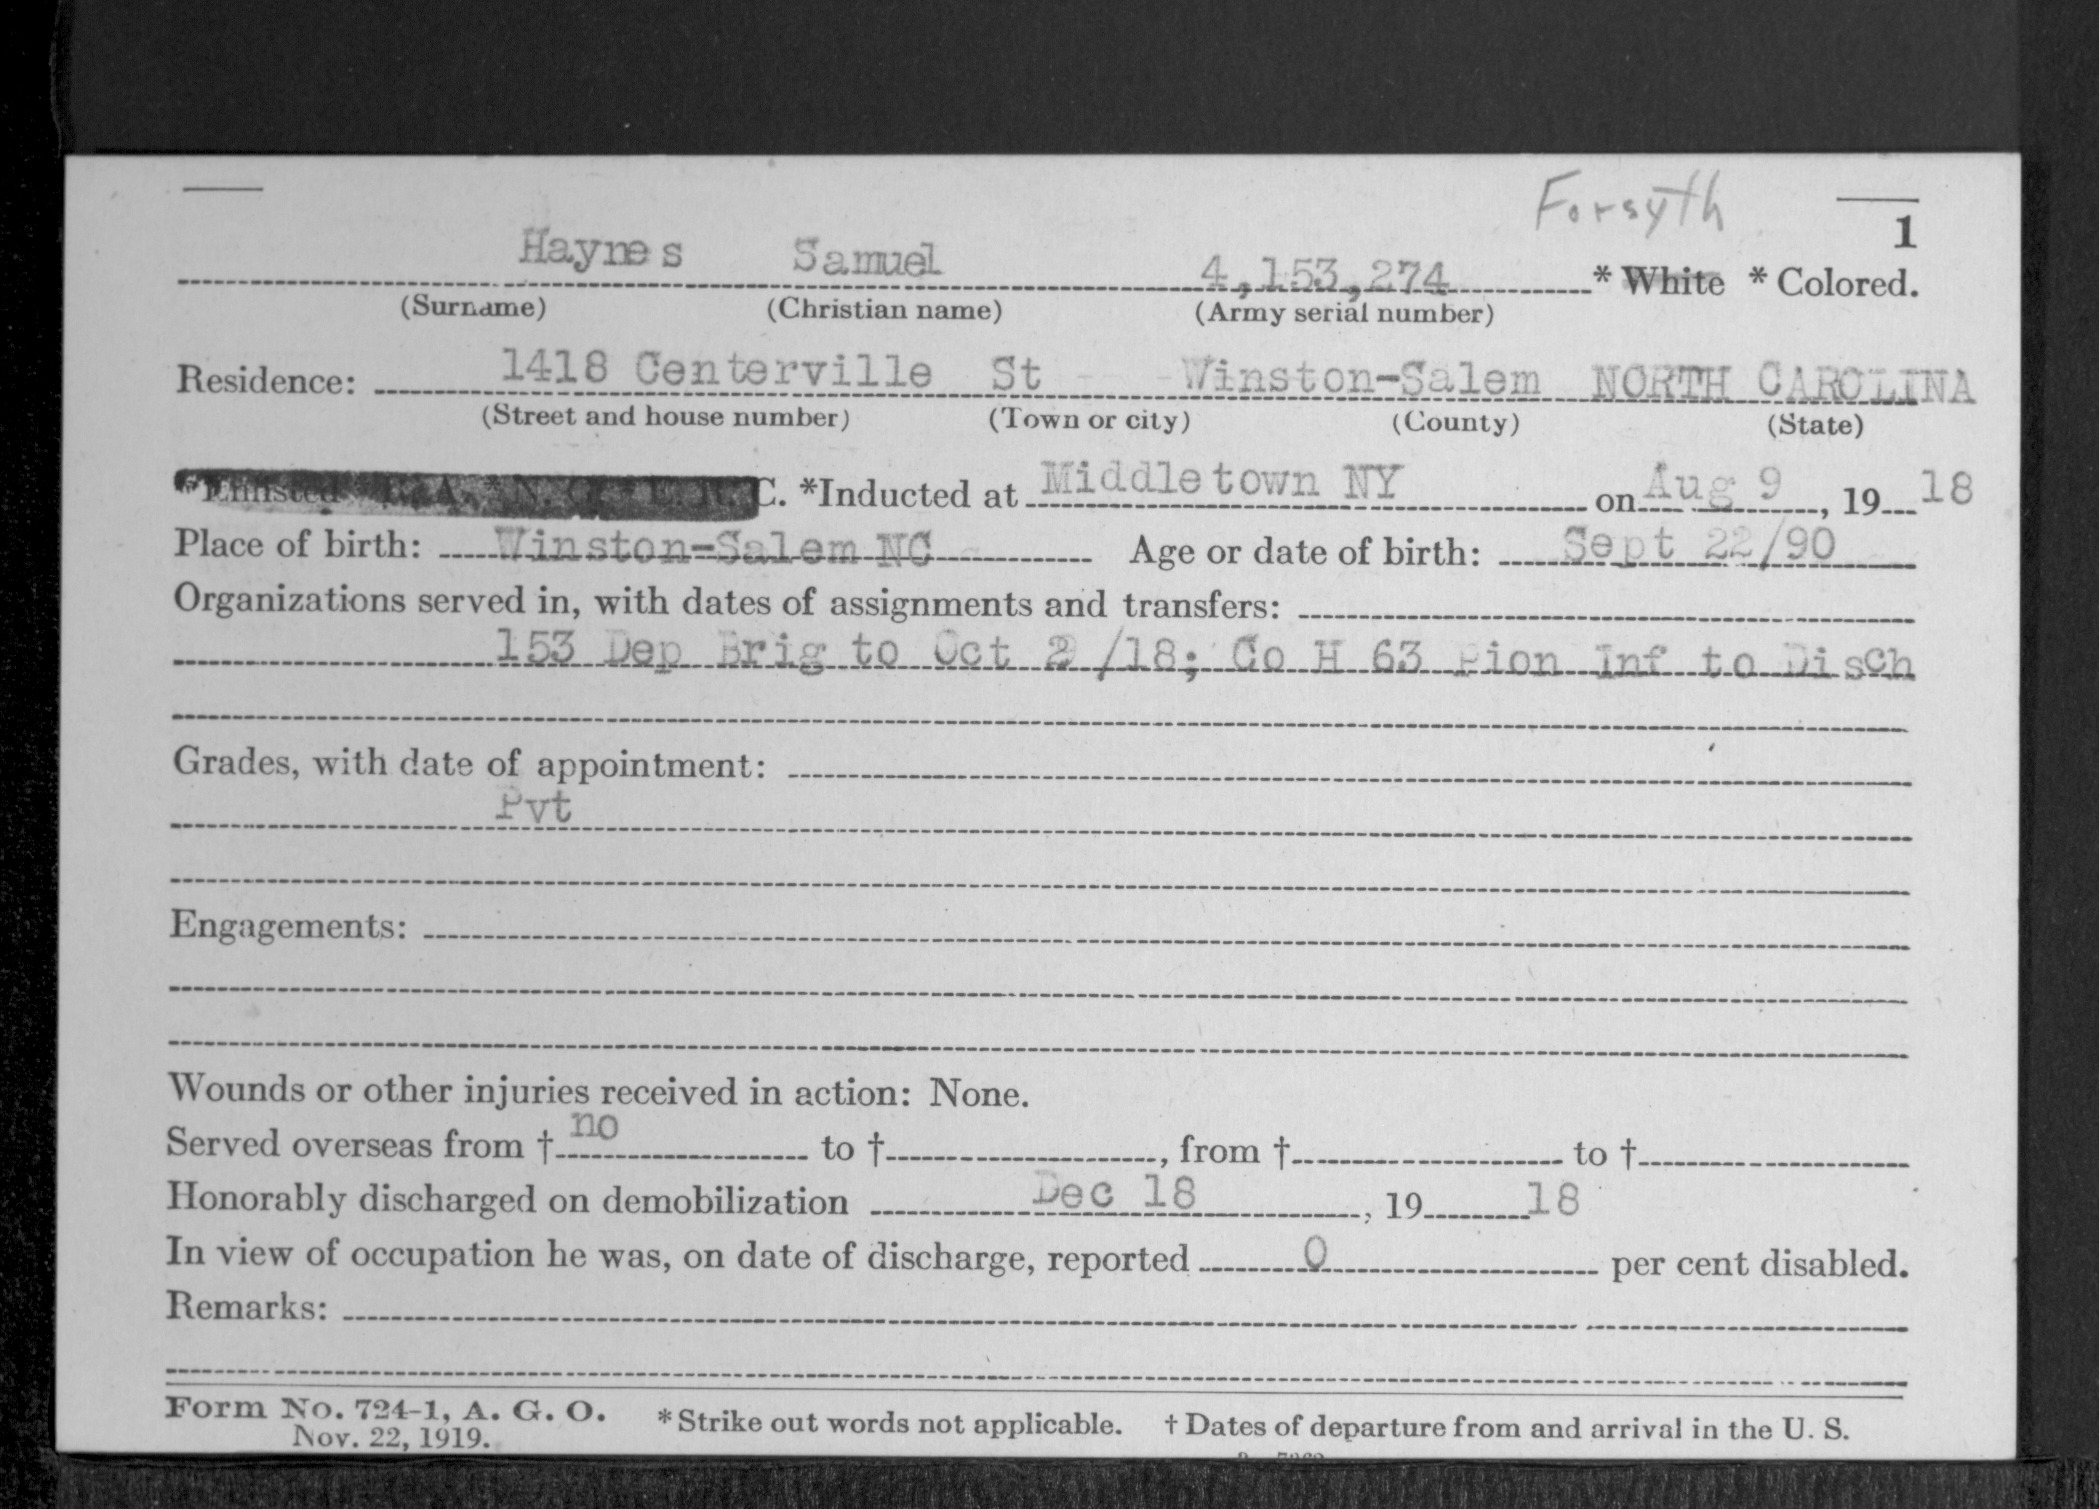 Forsyth
1
Haynes Samuel 4,153,274 * White * Colored.
(Surname) (Christian name) (Army serial number)
Residence: 1418 Centerville St Winston-Salem NORTH CAROLINA
(Street and house number) (Town or city) (County) (State)
*Enlisted R. A. * N. G. * E. R. C. *Inducted at Middletown NY on Aug 9, 19 18
Place of birth: Winston-Salem NC Age or date of birth: Sept 22/90
Organizations served in, with dates of assignments and transfers:
153 Dep Brig to Oct 2/18; Co H 63 Pion Inf to Disch
Grades, with date of appointment:
Pvt
Engagements:
Wounds or other injuries received in action: None.
Served overseas from † no to †, from † to †
Honorably discharged on demobilization Dec 18, 19 18
In view of occupation he was, on date of discharge, reported 0 per cent disabled.
Remarks:
Form No. 724-1, A. G. O. * Strike out words not applicable. † Dates of departure from and arrival in the U. S.
Nov. 22, 1919.